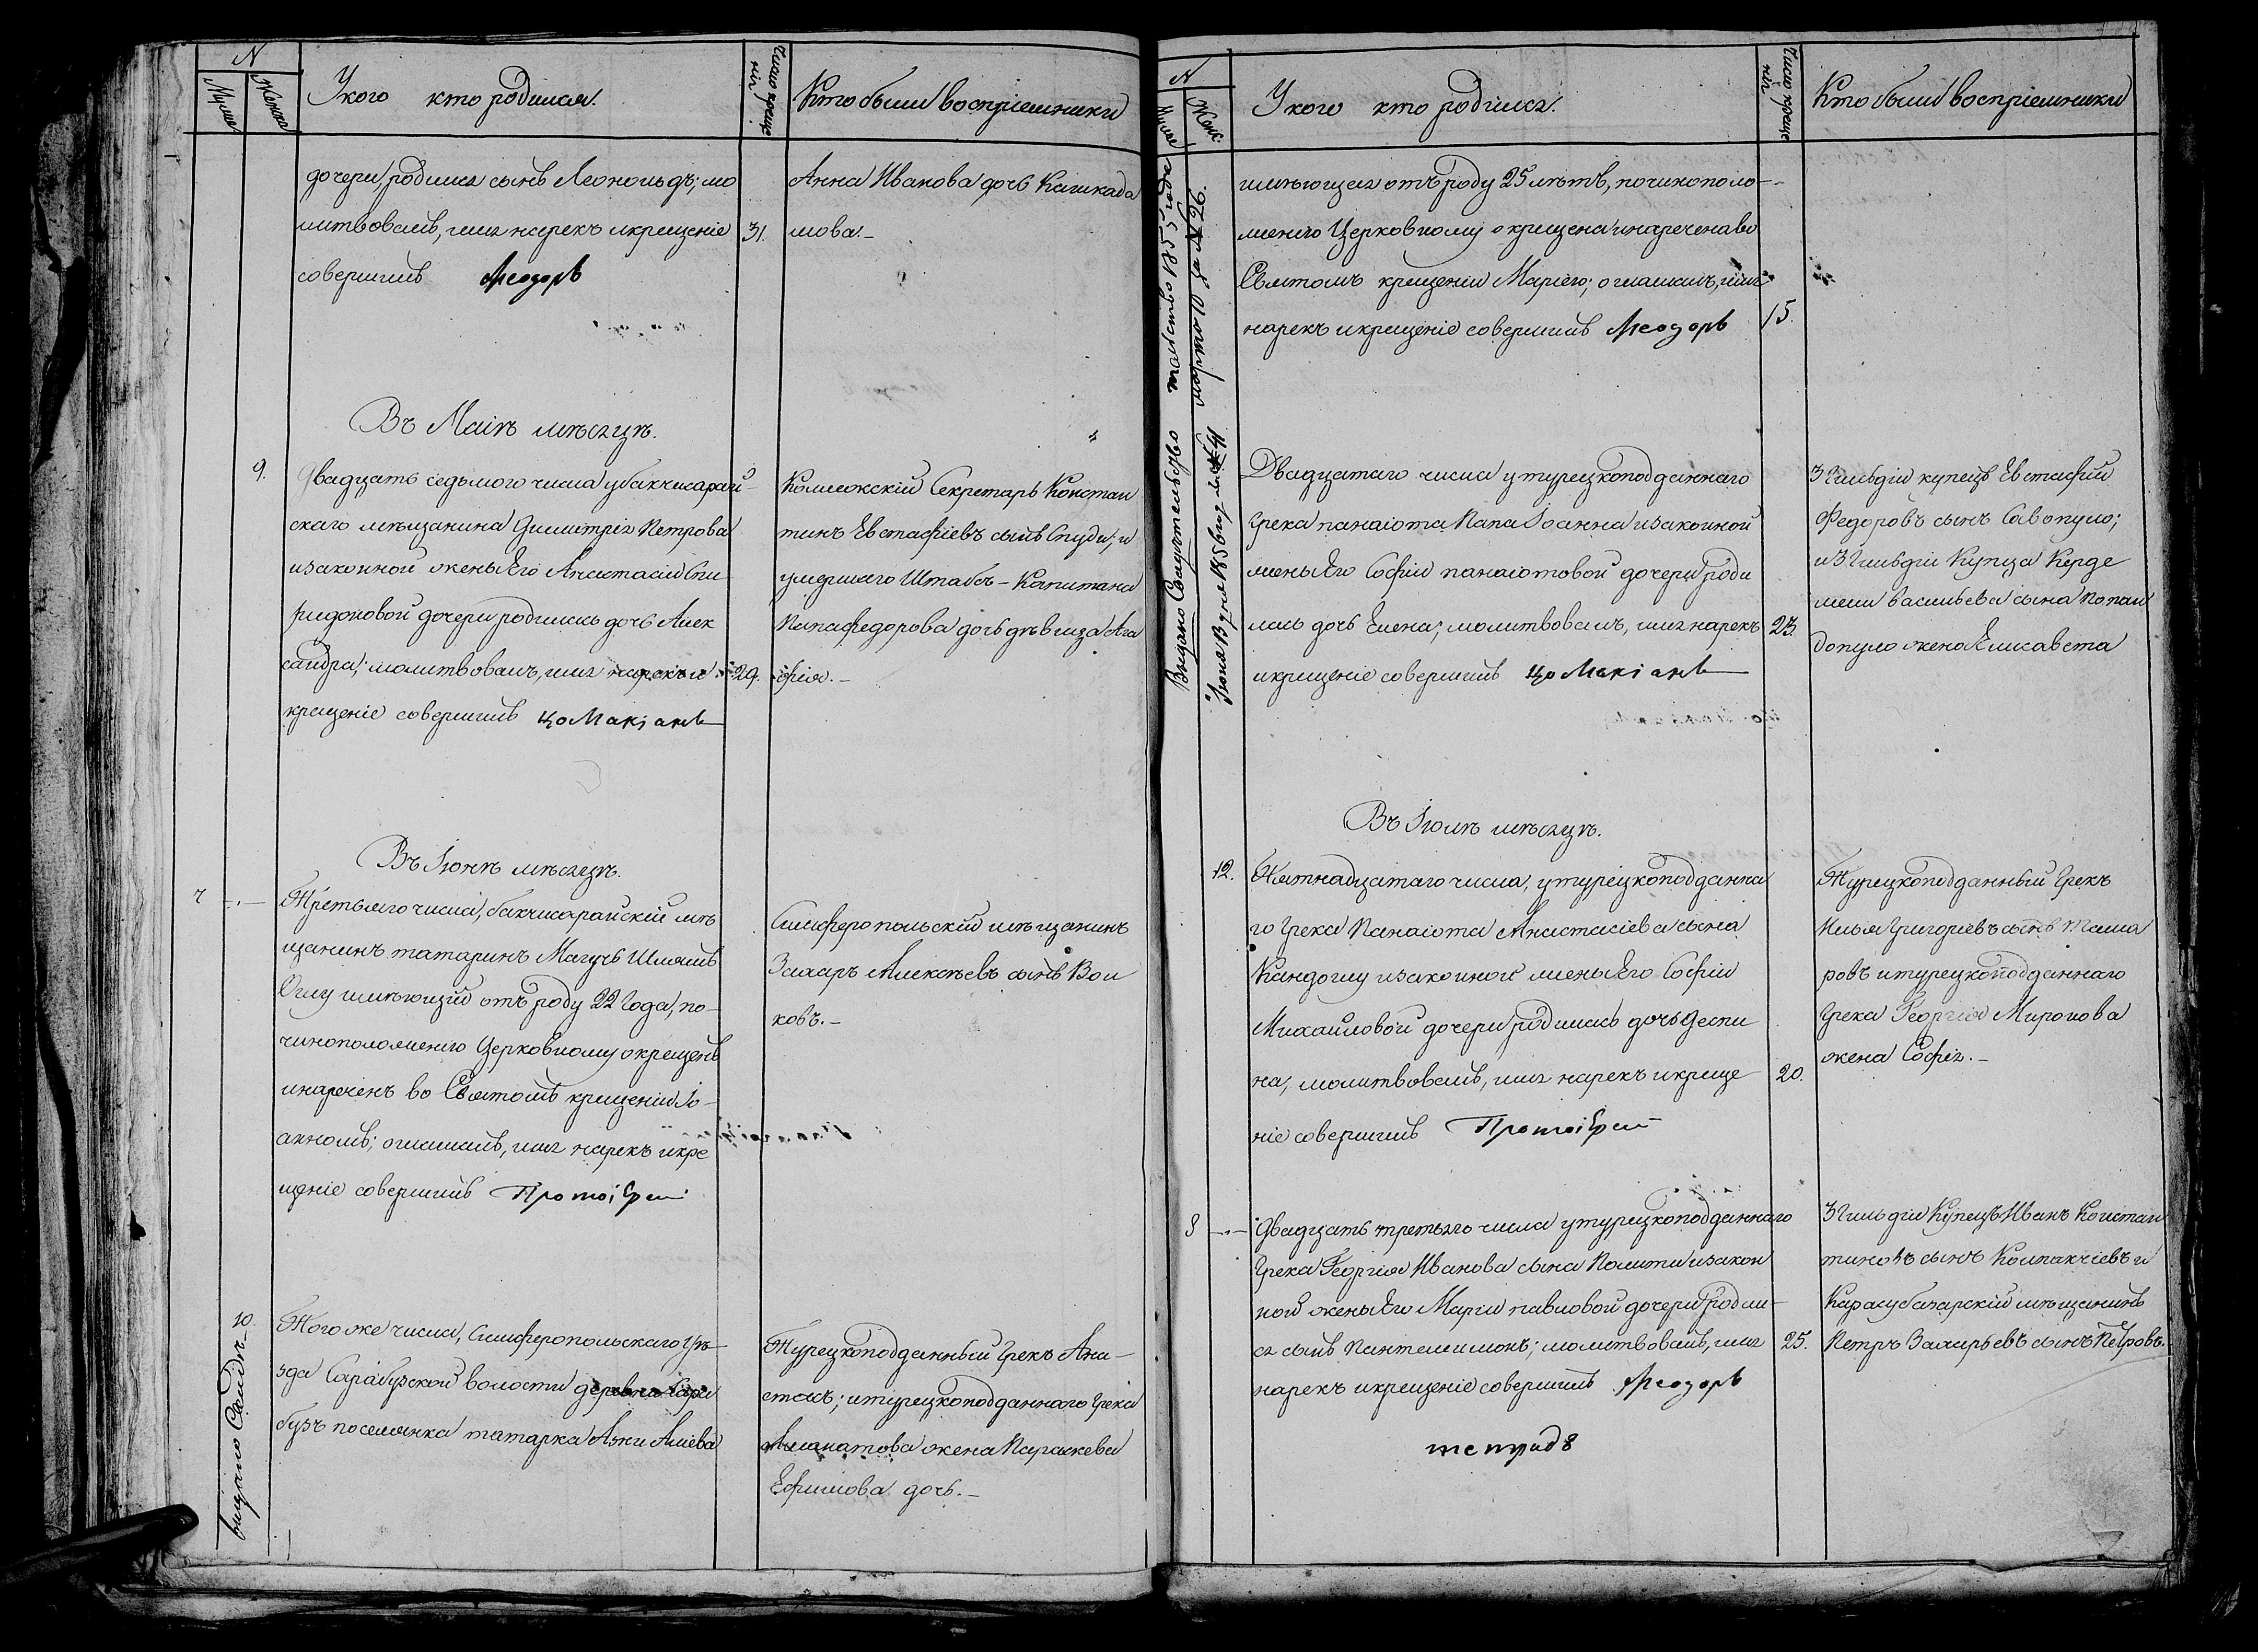 N
Мужеска
Женска
У кого кто родился.
Число крещенія
Кто были восприемники
дочери, родился сынъ Леонольдъ; мо
литвовалъ, имя нарекъ и крещеніе
совершилъ Ѳеодоръ
31.
Анна Иванова дочь Качикада
мова.-
Въ Маіѣ мѣсяцѣ.
9.
Двадцать седьмого числа у бакчисарай-
скаго мѣщанина Димитрія Петрова
и законной жены Его Анастасіи Спи
ридоновой дочери родилась дочь Алек
сандра; молитвовалъ, имя нарекъ и
крещеніе совершилъ
29.
Коллежскій Секретарь Констан
тинъ Евстафіевъ сынъ Спуди; и
умершаго Штабсъ-Капитана
Папафедорова дочь дѣвица Ага
фія.-
Въ Іюнѣ мѣсяцѣ.
7
Третьяго числа, бакчисарайскій мѣ
щанинъ татаринъ Магутъ Шлямъ
Оглу имѣющій отъ роду 22 Года, по-
чиноположенію Церковному окрещенъ
и нареченъ во Святомъ крещеніи Іо-
анномъ; оглашалъ, имя нарекъ и кре
щеніе совершилъ Протоіерей
Симферопольскій мѣщанинъ
Захаръ Алексѣевъ сынъ Вол
ковъ.-
10.
Того же числа, Симферопольскаго Уѣ-
зда Сарабузской волости деревни Сара
бузъ поселянка татарка Ажи Алиева
Турецкоподданный Грекъ Ана-
стасъ; и турецкоподданнаго Грека
Аманатова жена Параскева
Ефимова дочь.-
N
Женс:
У кого кто родился.
Число крещенія
Кто были восприемники
Выдано Свидѣтельство
имѣющая отъ роду 25 лѣтъ, по чинополо-
женію Церковному окрещена и наречена во
Святомъ крещеніи Маріею; оглашалъ, имя
нарекъ и крещеніе совершилъ Ѳеодоръ
15.
Двадцатаго числа у турецкоподданнаго
Грека Панаіота Папа Іоанна и законной
жены Его Софіи Панаіотовой дочери роди
лась дочь Елена; молитвовалъ, имя нарекъ
и крещеніе совершилъ
23.
3 Гильдіи купецъ Евстафій
Федоровъ сынъ Савопуло;
и 3 Гильдіи Купца Керде
мели Васильева сына Попан
допуло жена Елисавета
Въ Іюлѣ мѣсяцѣ.
12.
Пятнадцатаго числа, у турецкоподданна
го Грека Панаіота Анастасіева сына
Кандоглу и законной жены Его Софіи
Михайловой дочери родилась дочь Деспи
на, молитвовалъ, имя нарекъ и креще
ніе совершилъ Протоіерей
20.
Турецкоподданный Грекъ
Илья Григорьевъ сынъ Тама
ровъ и турецкоподданнаго
Грека Георгія Миронова
жена Софія.-
8
Двадцать третьяго числа у турецкоподданнаго
Грека Георгія Иванова сына Полити и закон
ной жены Его Маріи Павловой дочери родил-
ся сынъ Пантелеимонъ; молитвовалъ, имя
нарекъ и крещеніе совершилъ Ѳеодоръ
25.
3 Гильдіи Купецъ Иванъ Констан
тиновъ сынъ Колпакчіевъ и
Карасубазарскій мѣщанинъ
Петръ Захарьевъ сынъ Петровъ.